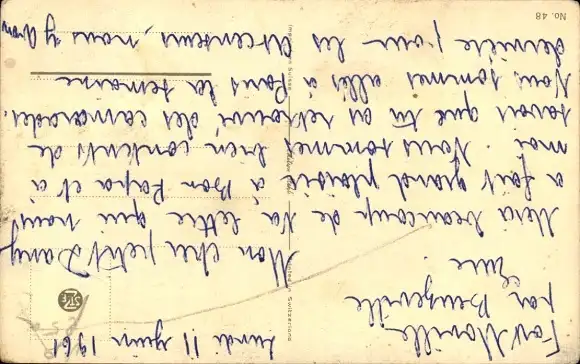 Lundi 11 Juin 1961
Fort Moville
par Beuzeville
Eure.
Mon cher petit Dany
Merci beaucoup de ta lettre qui nous
a fait grand plaisir à Bon Papa et à
moi. Nous sommes bien contents de
savoir que tu as retrouvé des camarades.
Nous sommes allés à Paris la semaine
dernière pour les Ascenseurs, nous y avons
No. 48
Switzerland